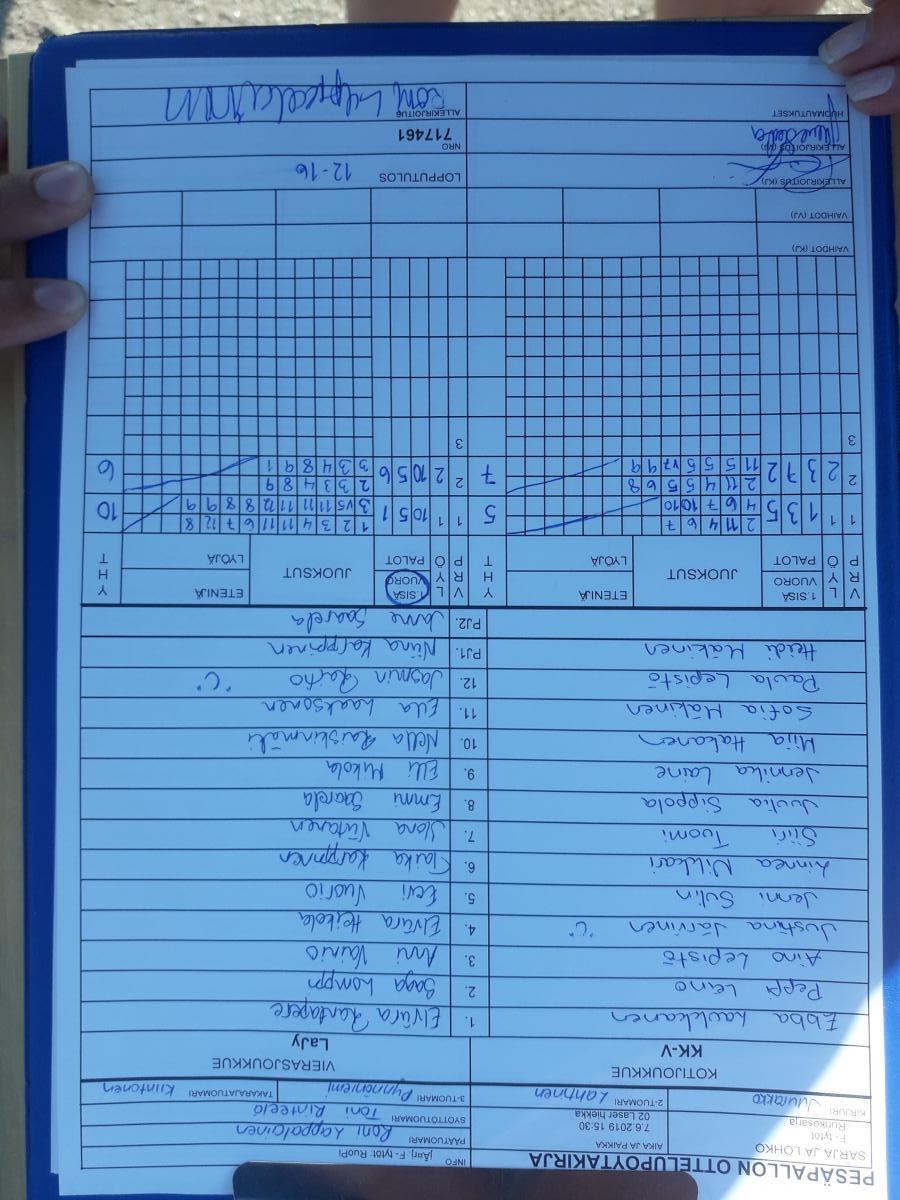 PESÄPALLON OTTELUPÖYTÄKIRJA
SARJA JA LOHKO
F - tytöt
Runkosarja
AIKA JA PAIKKA
7.6.2019 15:30
02 Laser hiekka
INFO
Järj. F - tytöt: RuoPi
PÄÄTUOMARI Roni Lappalainen
SYÖTTÖTUOMARI Toni Rinteelä
KIRJURI
2-TUOMARI Lahtinen
3-TUOMARI Pynnöniemi
TAKARAJATUOMARI Kiintonen
KOTIJOUKKUE
KK-V
VIERASJOUKKUE
LaJy
Ebba Laukkanen 1. Elviira Rantapere
Peppi Leino 2. Saga Lamppu
Aino Lepistö 3. Anni Vainio
Justiina Järvinen "C" 4. Elviira Heikola
Jenni Sulin 5. Eevi Vuorio
Linnea Vilkkari 6. Taika Karppinen
Siiri Tuomi 7. Ilona Virtanen
Juulia Sippola 8. Emmi Saarela
Jennika Laine 9. Elli Mikola
Mija Hakanen 10. Nella Raiskinmäki
Sofia Mäkinen 11. Eda Laaksonen
Paula Lepistö 12. Jasmin Raiho "C"
Heidi Mäkinen PJ1. Niina Karppinen
PJ2. Janne Saarela
V P R
L Ö Y
1.SISÄ VUORO
PALOT
JUOKSUT
ETENIJÄ
LYÖJÄ
Y H T
V P R
L Ö Y
1.SISÄ VUORO
PALOT
JUOKSUT
ETENIJÄ
LYÖJÄ
Y H T
1 1 1 3 5 2 11 4 6 7 5
4 6 7 10 10
1 1 10 5 1 1 2 3 4 11 11 6 7 12 8 10
3 v5 11 11 11 12 8 8 9 9
2 2 3 7 2 2 11 4 5 5 6 8 7
11 5 5 5 v7 9 9
2 2 10 5 6 2 3 3 4 8 9 6
3 3 4 8 9 1
3 3
VAIHDOT (KJ)
VAIHDOT (VJ)
ALLEKIRJOITUS (KJ)
LOPPUTULOS 12-16
ALLEKIRJOITUS (VJ)
NRO
717461
HUOMAUTUKSET
ALLEKIRJOITUS